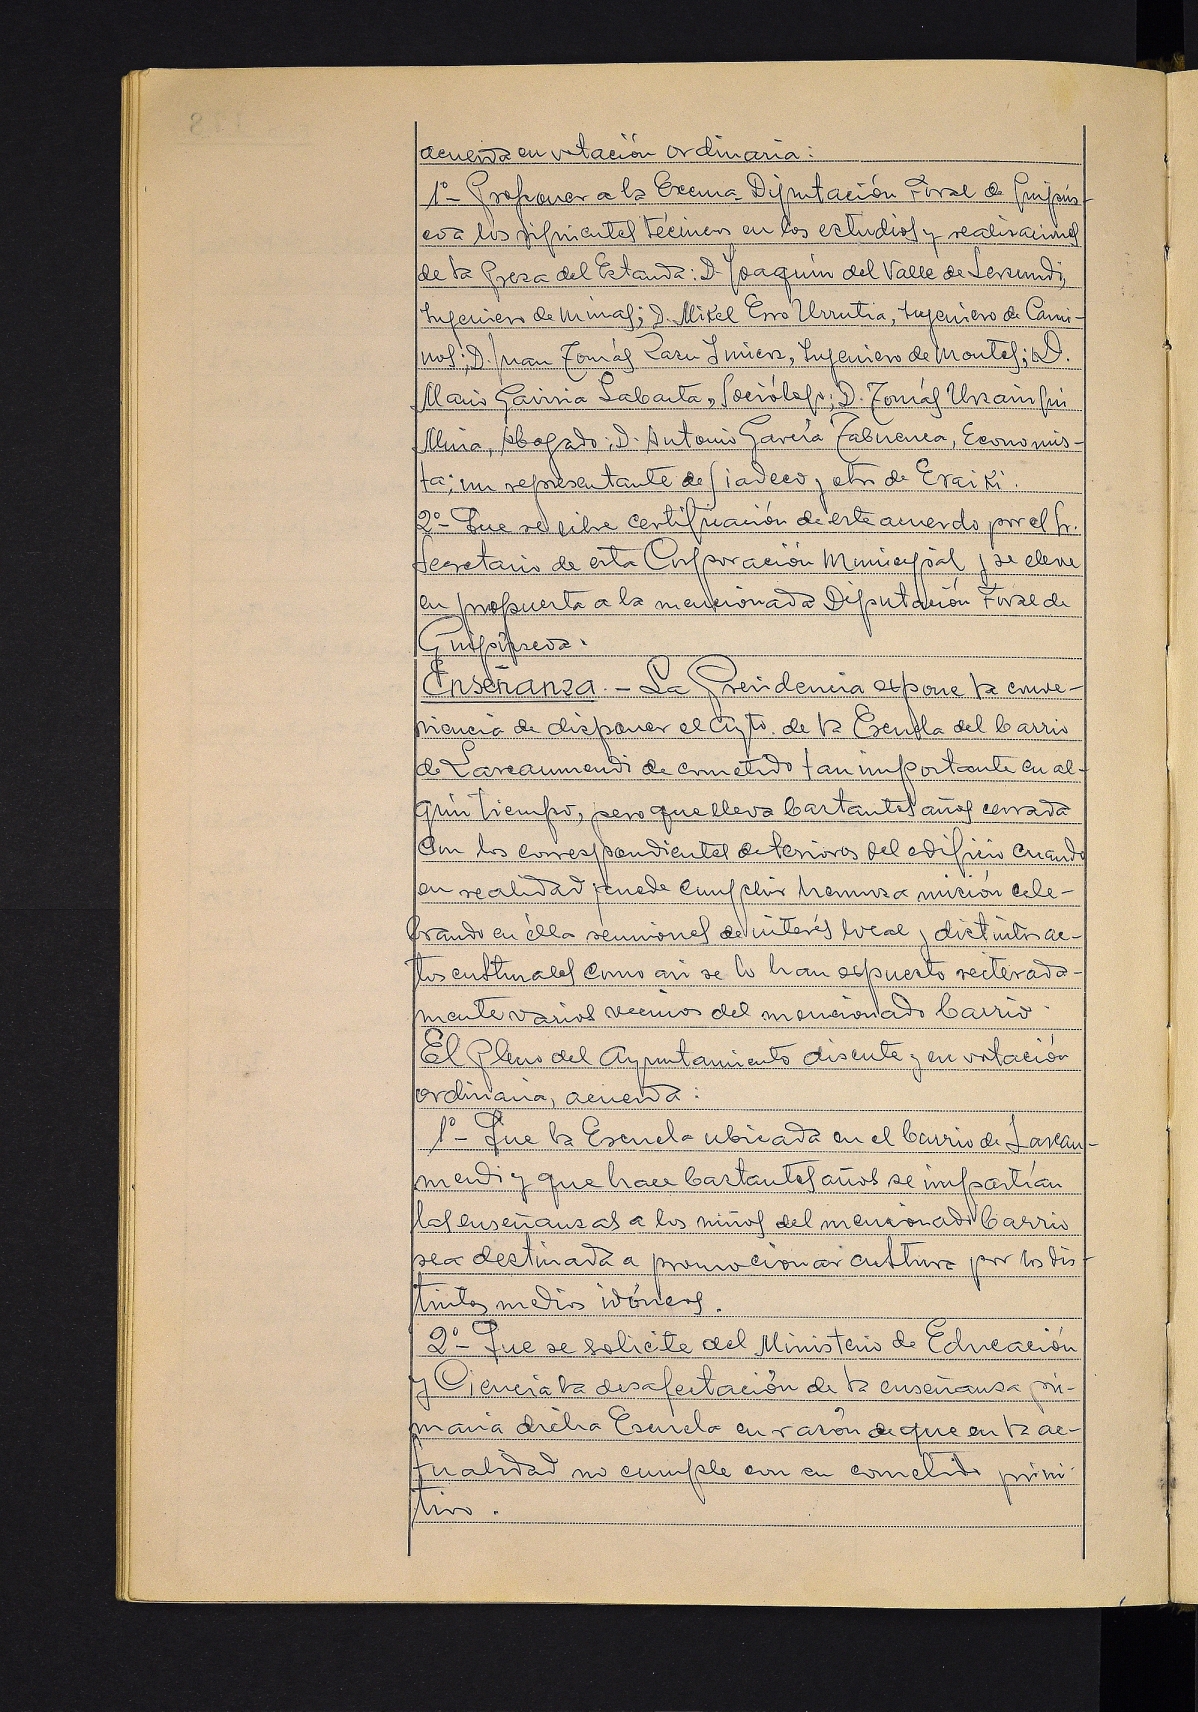 acuerda en votación ordinaria:
1º- Proponer a la Excma Diputación Foral de Guipúz-
coa los siguientes técnicos en los estudios y realizaciones
de la Presa del Estanda: D. Joaquín del Valle de Lersundi,
Ingeniero de Minas; D. Mikel Erro Urrutia, Ingeniero de Cami-
nos; D. Juan Tomás Ingeniero de Montes; D.
Mario Gaviria Labarta, Sociólogo; D. Tomás Urzainqui
Mina, Abogado; D. Antonio García Tabuenca, Economis-
ta; un representante de Siadeco y otro de Eraiki.
2º- Que se libre certificación de este acuerdo por el Sr.
Secretario de esta Corporación Municipal y se eleve
en propuesta a la mencionada Diputación Foral de
Guipúzcoa.
Enseñanza. - La Presidencia expone la conve-
niencia de disponer el Ayto. de la Escuela del barrio
de Larcaumendi de cometido tan importante en al-
gún tiempo, pero que lleva bastantes años cerrada
con los correspondientes deterioros del edificio cuando
en realidad puede cumplir hermosa misión cele-
brando en élla reuniones de interés local y distintos ac-
tos culturales como así se lo han expuesto reiterada-
mente varios vecinos del mencionado barrio.
El Pleno del Ayuntamiento discute y en votación
ordinaria, acuerda:
1º- Que la Escuela ubicada en el barrio de Larcau-
mendi y que hace bastantes años se impartían
las enseñanzas a los niños del mencionado barrio
sea destinada a promocionar cultura por los dis-
tintos medios idóneos.
2º- Que se solicite del Ministerio de Educación
y Ciencia la desafectación de la enseñanza pri-
maria dicha Escuela en razón de que en la ac-
tualidad no cumple con su cometido primi-
tivo.